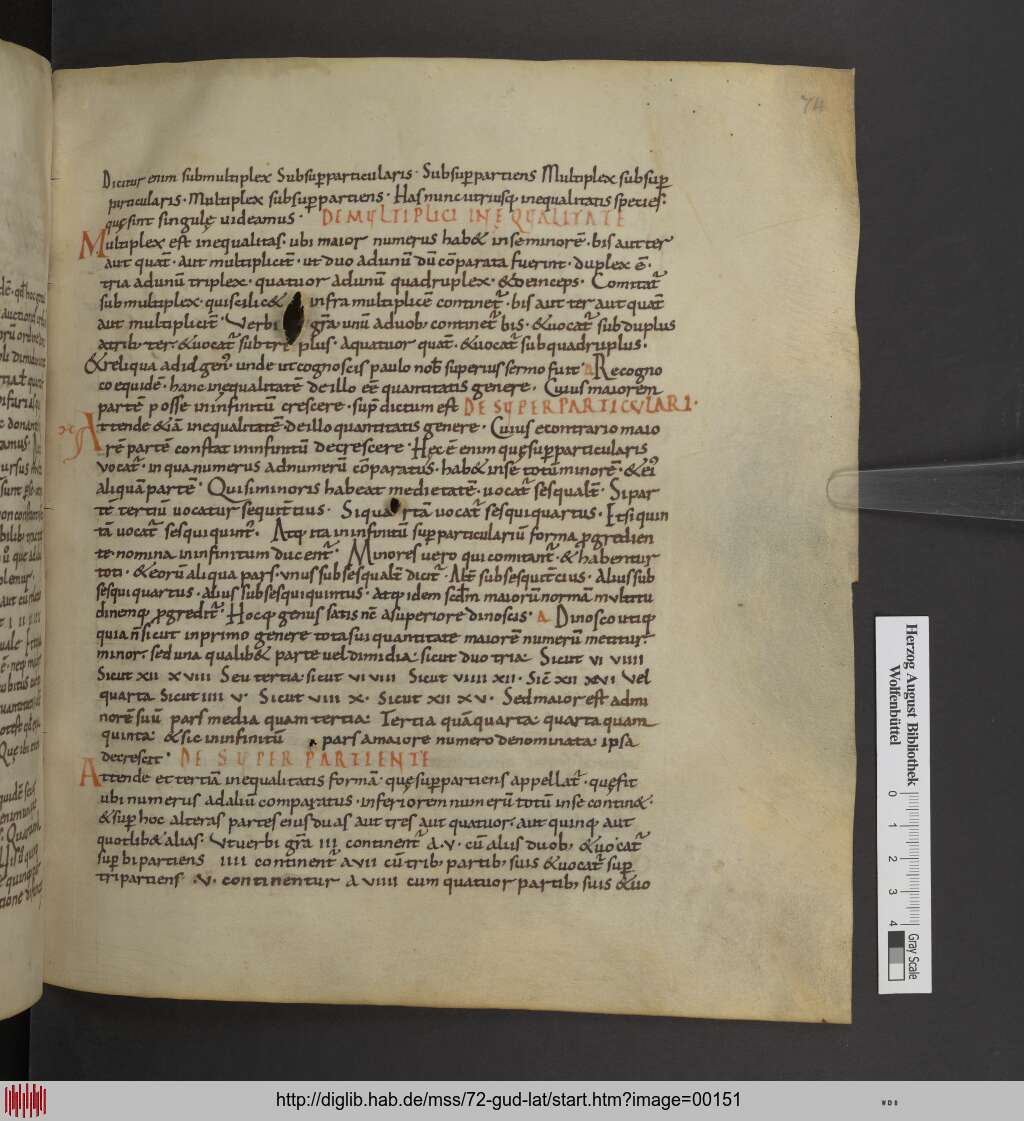 74
Dicitur enim submultiplex Subsuꝑparticularis · Subsuꝑpartiens Multiplex subsuꝑ
particularis · Multiplex subsuꝑpartiens · Has nunc utriusq; inequalitatis species ·
quę sint singulę uideamus · DE MULTIPLICI INĘQUALITATE
Multiplex est inequalitas · ubi maior numerus hab& in se minorē · bis aut ter
aut quat̄ · aut multiplicit̄ · ut duo ad unū dū cōparata fuerint · duplex ē ·
tria ad unū triplex · quatuor ad unū quadruplex · & deinceps · Comitat᷑
submultiplex · qui scilic& infra multiplicē continet᷑ · bis aut ter aut quat̄
aut multiplicit̄ · Verbi gr̄a unū a duob; continet᷑ bis · & uocat᷑ subduplus
a trib; ter · & uocat᷑ subtriplus · A quatuor quat̄ · & uocat᷑ subquadruplus ·
& reliqua ad id gen᷒ · unde ut cognoscis paulo nob̄ superius sermo fuit Δ Recogno
co equidē · hanc inequalitatē de illo eē quantitatis genere · Cuius maiorem
partē posse in infinitū crescere · sup̄ dictum est DE SUPERPARTICULARI ·
Attende & iā inequalitatē · de illo quantitatis genere · Cuius e contrario maio
rē partē constat in infinitū decrescere · Hęc ē enim quę suꝑparticularis
vocat᷑ · in qua numerus ad numerū cōparatus · hab& in se totū minorē · & ei᷒
aliquā partē · Qui si minoris habeat medietatē · uocat᷑ sesqualt̄ · Si par
tē tertiū vocatur sequitertius · Si quartā uocat᷑ sesquiquartus · Et si quin
tā uocat᷑ sesquiquint᷒ · Atq; ita in infinitū suꝑparticulariū forma ꝓgredien
te · nomina in infinitum ducent᷑ · Minores uero qui comitant᷑ · & habentur
toti · & eorū aliqua pars · vnus subsesqualt̄ dicit᷑ · Alt̄ subsesquit̄cius · Alius sub
sesquiquartus · alius subsesquiquintus · atq; idem scdm̄ maiorū normā multitu
dinemq; ꝓgredit᷑ · Hocq; genus satis nc̄ a superiore dinoscis · Δ Dinosco utiq;
quia n̄ sicut in primo genere tota sui quantitate maiorē numerū metitur
minor · sed una qualib& parte uel dimidia · sicut duo tria · Sicut VI VIIII
Sicut XII XVIII Seu tertia · sicut VI VIII Sicut VIIII XII · Sic̄ XII XVI Vel
quarta Sicut IIII V · Sicut VIII X · Sicut XII XV · Sed maior est admi
norē suū pars media quam tertia · Tertia quā quarta · quarta quam
quinta · & sic in infinitū pars a maiore numero denominata · ipsa
decrescit · DE SUPERPARTIENTE
Attende et tertiā inequalitatis formā · quę suꝑpartiens appellat᷑ · quę fit
ubi numerus ad aliū comparatus · inferiorem numerū totū in se contin& ·
& suꝑ hoc alteras partes eius duas aut tres aut quatuor · aut quinq; aut
quotlib& alias · Ut uerbi gr̄a III continent᷑ A · V · cū aliis duob; & uocat᷑
suꝑbipartiens IIII continent᷑ A VII cū trib; partib; suis & uocat᷑ suꝑ
tripartiens · V · continentur A VIIII cum quatuor partib; suis & uo
Herzog August Bibliothek
Wolfenbüttel
0 1 2 3 4
Gray Scale
http://diglib.hab.de/mss/72-gud-lat/start.htm?image=00151